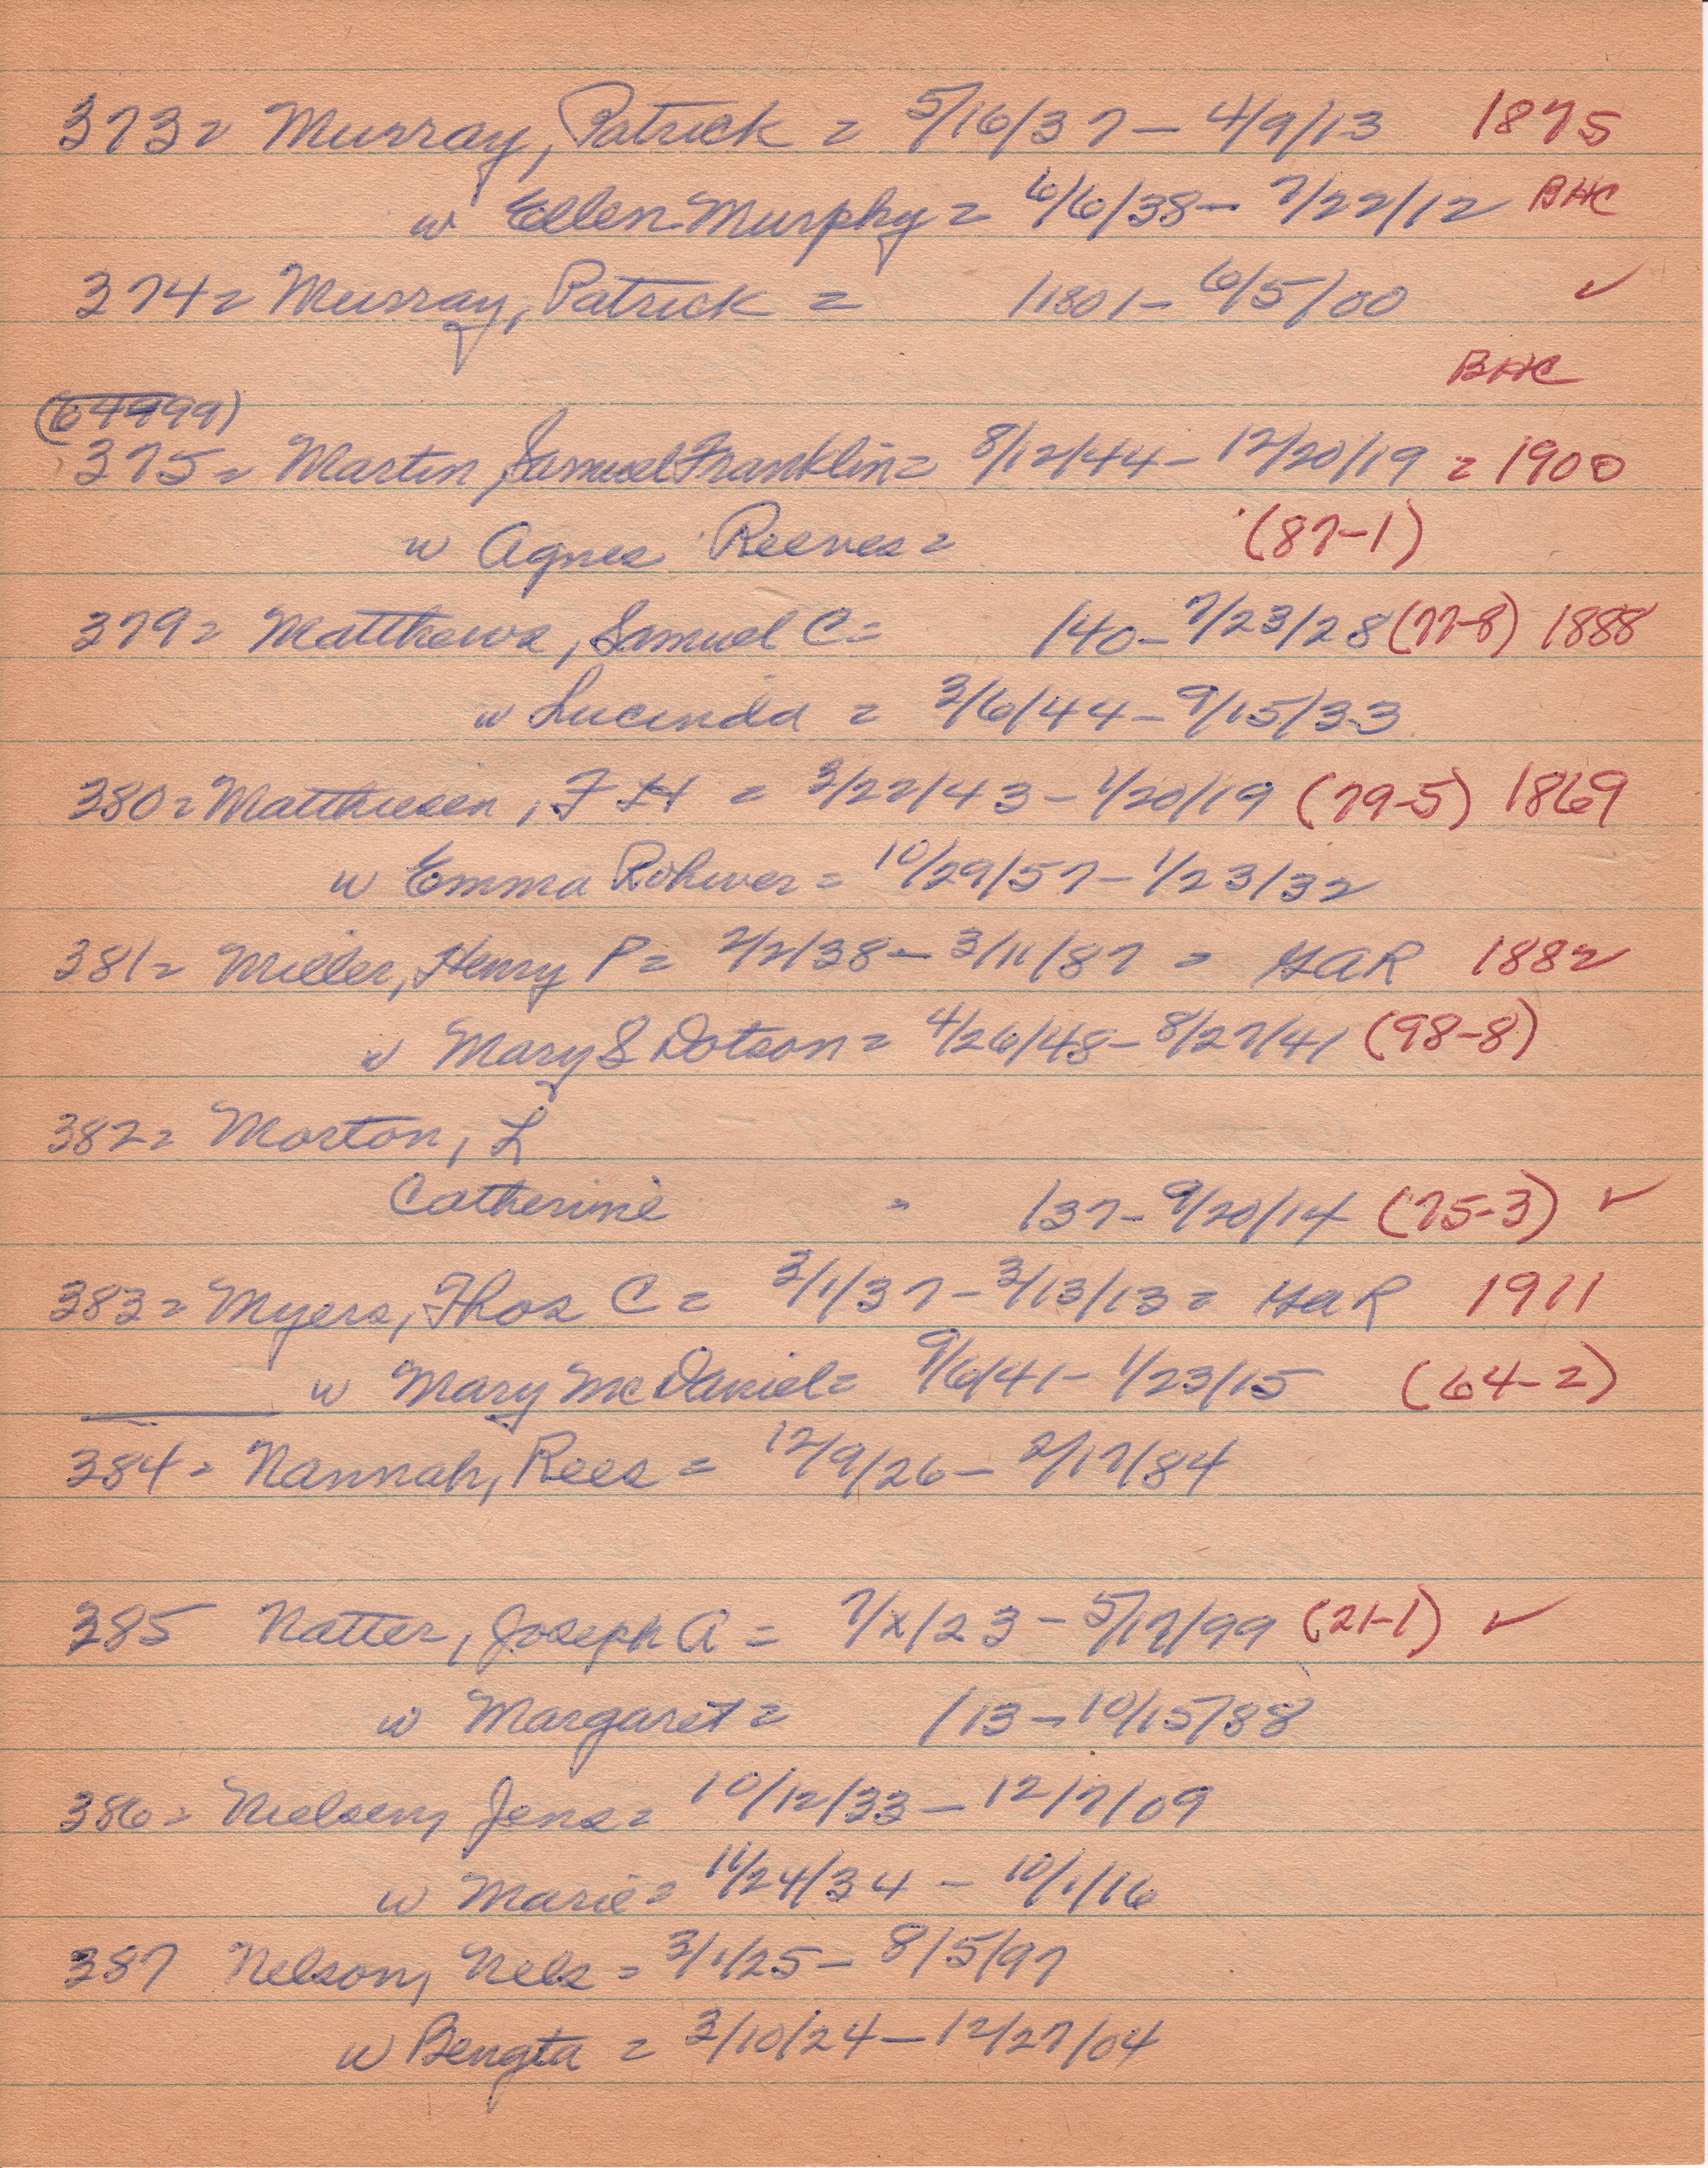 373= Murray, Patrick = 5/16/37 - 4/9/13 1875
w Ellen Murphy = 6/6/38 - 7/22/12 BHC
374= Murray, Patrick = /1801 - 6/5/00 ✓
BHC
(64999)
375= Martin, Samuel Franklin = 8/12/44 - 12/20/19 = 1900
w Agnes Reeves = (87-1)
379= Matthews, Samuel C = /40 - 7/23/28 (77-8) 1888
w Lucinda = 3/6/44 - 9/15/33
380= Matthiesen, F H = 3/22/43 - 1/20/19 (79-5) 1869
w Emma Rohwer = 10/29/57 - 1/23/32
381= Miller, Henry P = 2/2/38 - 3/11/87 = GAR 1882
w Mary S Dotson = 4/26/48 - 8/27/41 (98-8)
382= Morton, L
Catherine = /37 - 9/20/14 (75-3) ✓
383= Myers, Thos C = 3/1/37 - 3/13/13 = GAR 1911
w Mary McDaniel = 9/6/41 - 1/23/15 (64-2)
384= Nannah, Rees = 12/9/26 - 2/17/84
385 Natter, Joseph A = 7/x/23 - 5/17/99 (21-1) ✓
w Margaret = /13 - 10/15/88
386= Nielsen, Jens = 10/12/33 - 12/7/09
w Marie = 11/24/34 - 10/1/16
387 Nelson, Nels = 3/1/25 - 8/5/97
w Bengta = 3/10/24 - 12/27/04